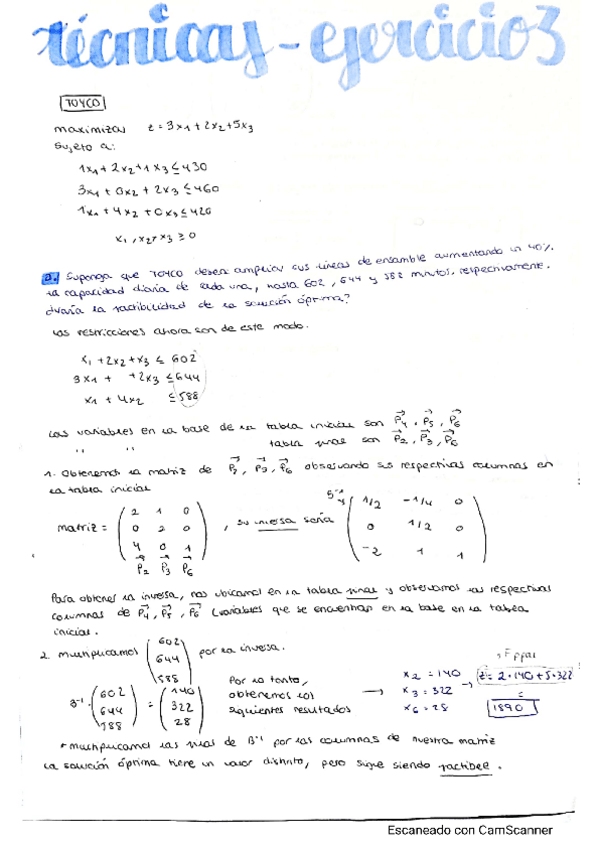 técnicas - ejercicio 3
TOYCO
maximizar z = 3x1 + 2x2 + 5x3
sujeto a:
1x1 + 2x2 + 1x3 ≤ 430
3x1 + 0x2 + 2x3 ≤ 460
1x1 + 4x2 + 0x3 ≤ 420
x1, x2, x3 ≥ 0
a. Suponga que TOYCO desea ampliar sus líneas de ensamble aumentando un 40%.
la capacidad diaria de cada una, hasta 602, 644 y 582 minutos, respectivamente.
la factibilidad de la solución óptima?
las restricciones ahora son de este modo.
x1 + 2x2 + x3 ≤ 602
3x1 + + 2x3 ≤ 644
x1 + 4x2 ≤ 588
las variables en la base de la tabla inicial son P4, P5, P6
" " tabla final son P2, P3, P6
1. Obtenemos la matriz de P2, P3, P6 observando sus respectivas columnas en
la tabla inicial
B-1
2 1 0 1/2 -1/4 0
matriz = 0 2 0 , su inversa sería 0 1/2 0
4 0 1 -2 1 1
P2 P3 P6
Para obtener la inversa, nos ubicamos en la tabla final y observamos las respectivas
columnas de P4, P5, P6 (variables que se encuentran en la base en la tabla
inicial.
2. multiplicamos (602 644 588) por la inversa.
B-1 · (602 644 588) = (140 322 28) Por lo tanto, obtenemos los siguientes resultados → x2 = 140 x3 = 322 x6 = 28 → z = 2·140 + 5·322 = 1890
* multiplicamos las filas de B-1 por las columnas de nuestra matriz
la solución óptima tiene un valor distinto, pero sigue siendo factible.
Escaneado con CamScanner